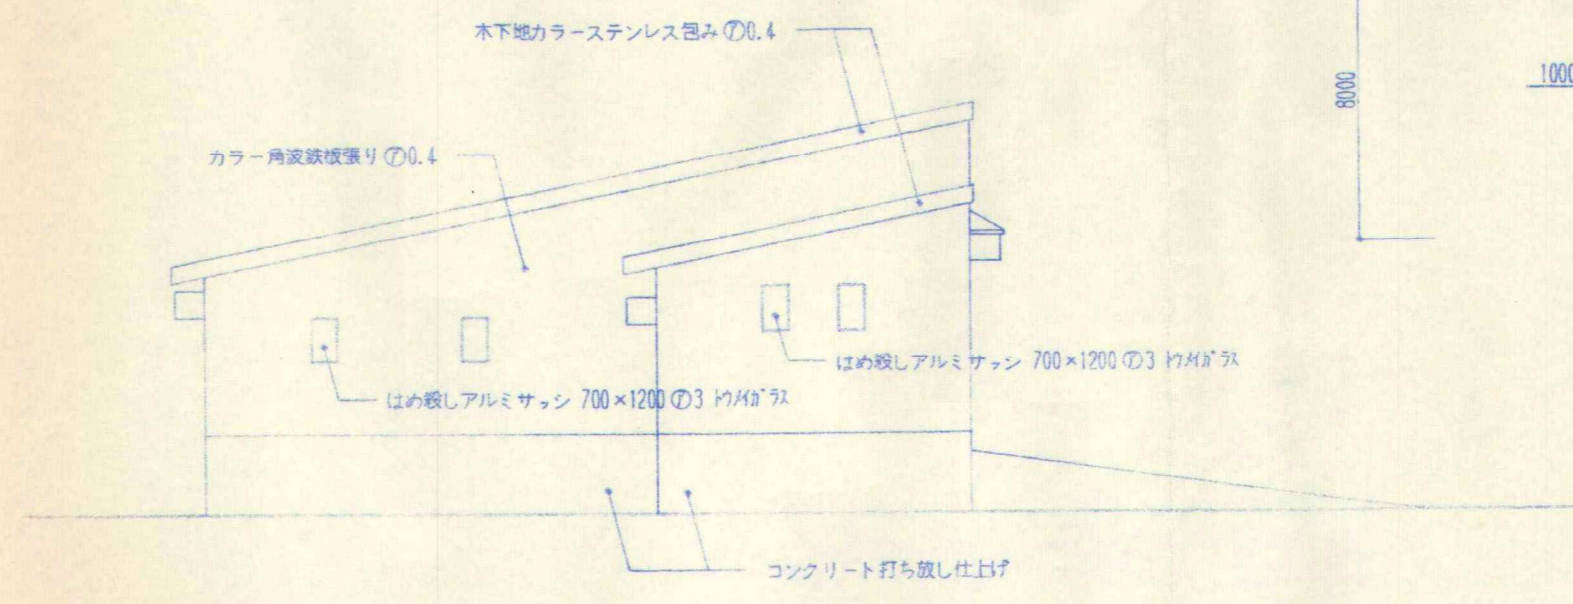 木下地カラーステンレス包み ㋐0.4
8000
1000
カラー角波鉄板張り ㋐0.4
はめ殺しアルミサッシ 700×1200 ㋐3 トウメイガラス
はめ殺しアルミサッシ 700×1200 ㋐3 トウメイガラス
コンクリート打ち放し仕上げ